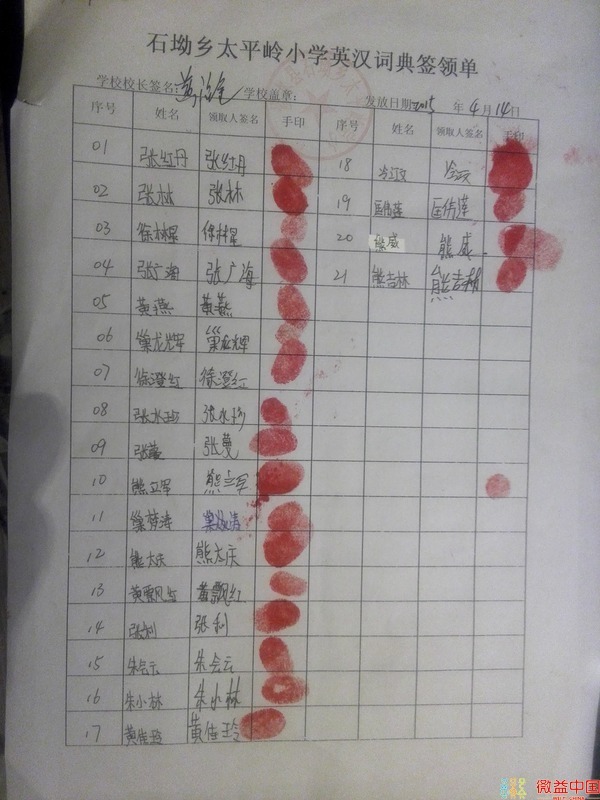 石坳乡太平岭小学英汉词典签领单
学校校长签名: 学校盖章: 发放日期2015 年 4 月 14 日
序号 姓名 领取人签名 手印 序号 姓名 领取人签名 手印
01 张红丹 张红丹 18
02 张林 张林 19 匡伟莲 匡伟莲
03 徐林星 徐林星 20 熊威 熊威
04 张广海 张广海 21 熊吉林 熊吉林
05 黄燕 黄燕
06 巢龙辉 巢龙辉
07 徐澄红 徐澄红
08 张水珍 张水珍
09 张蔓 张蔓
10 熊立军 熊立军
11
12 熊太庆 熊太庆
13 黄飘红 黄飘红
14 张利 张利
15 朱会云 朱会云
16 朱小林 朱小林
17 黄佳玲 黄佳玲
微益中国